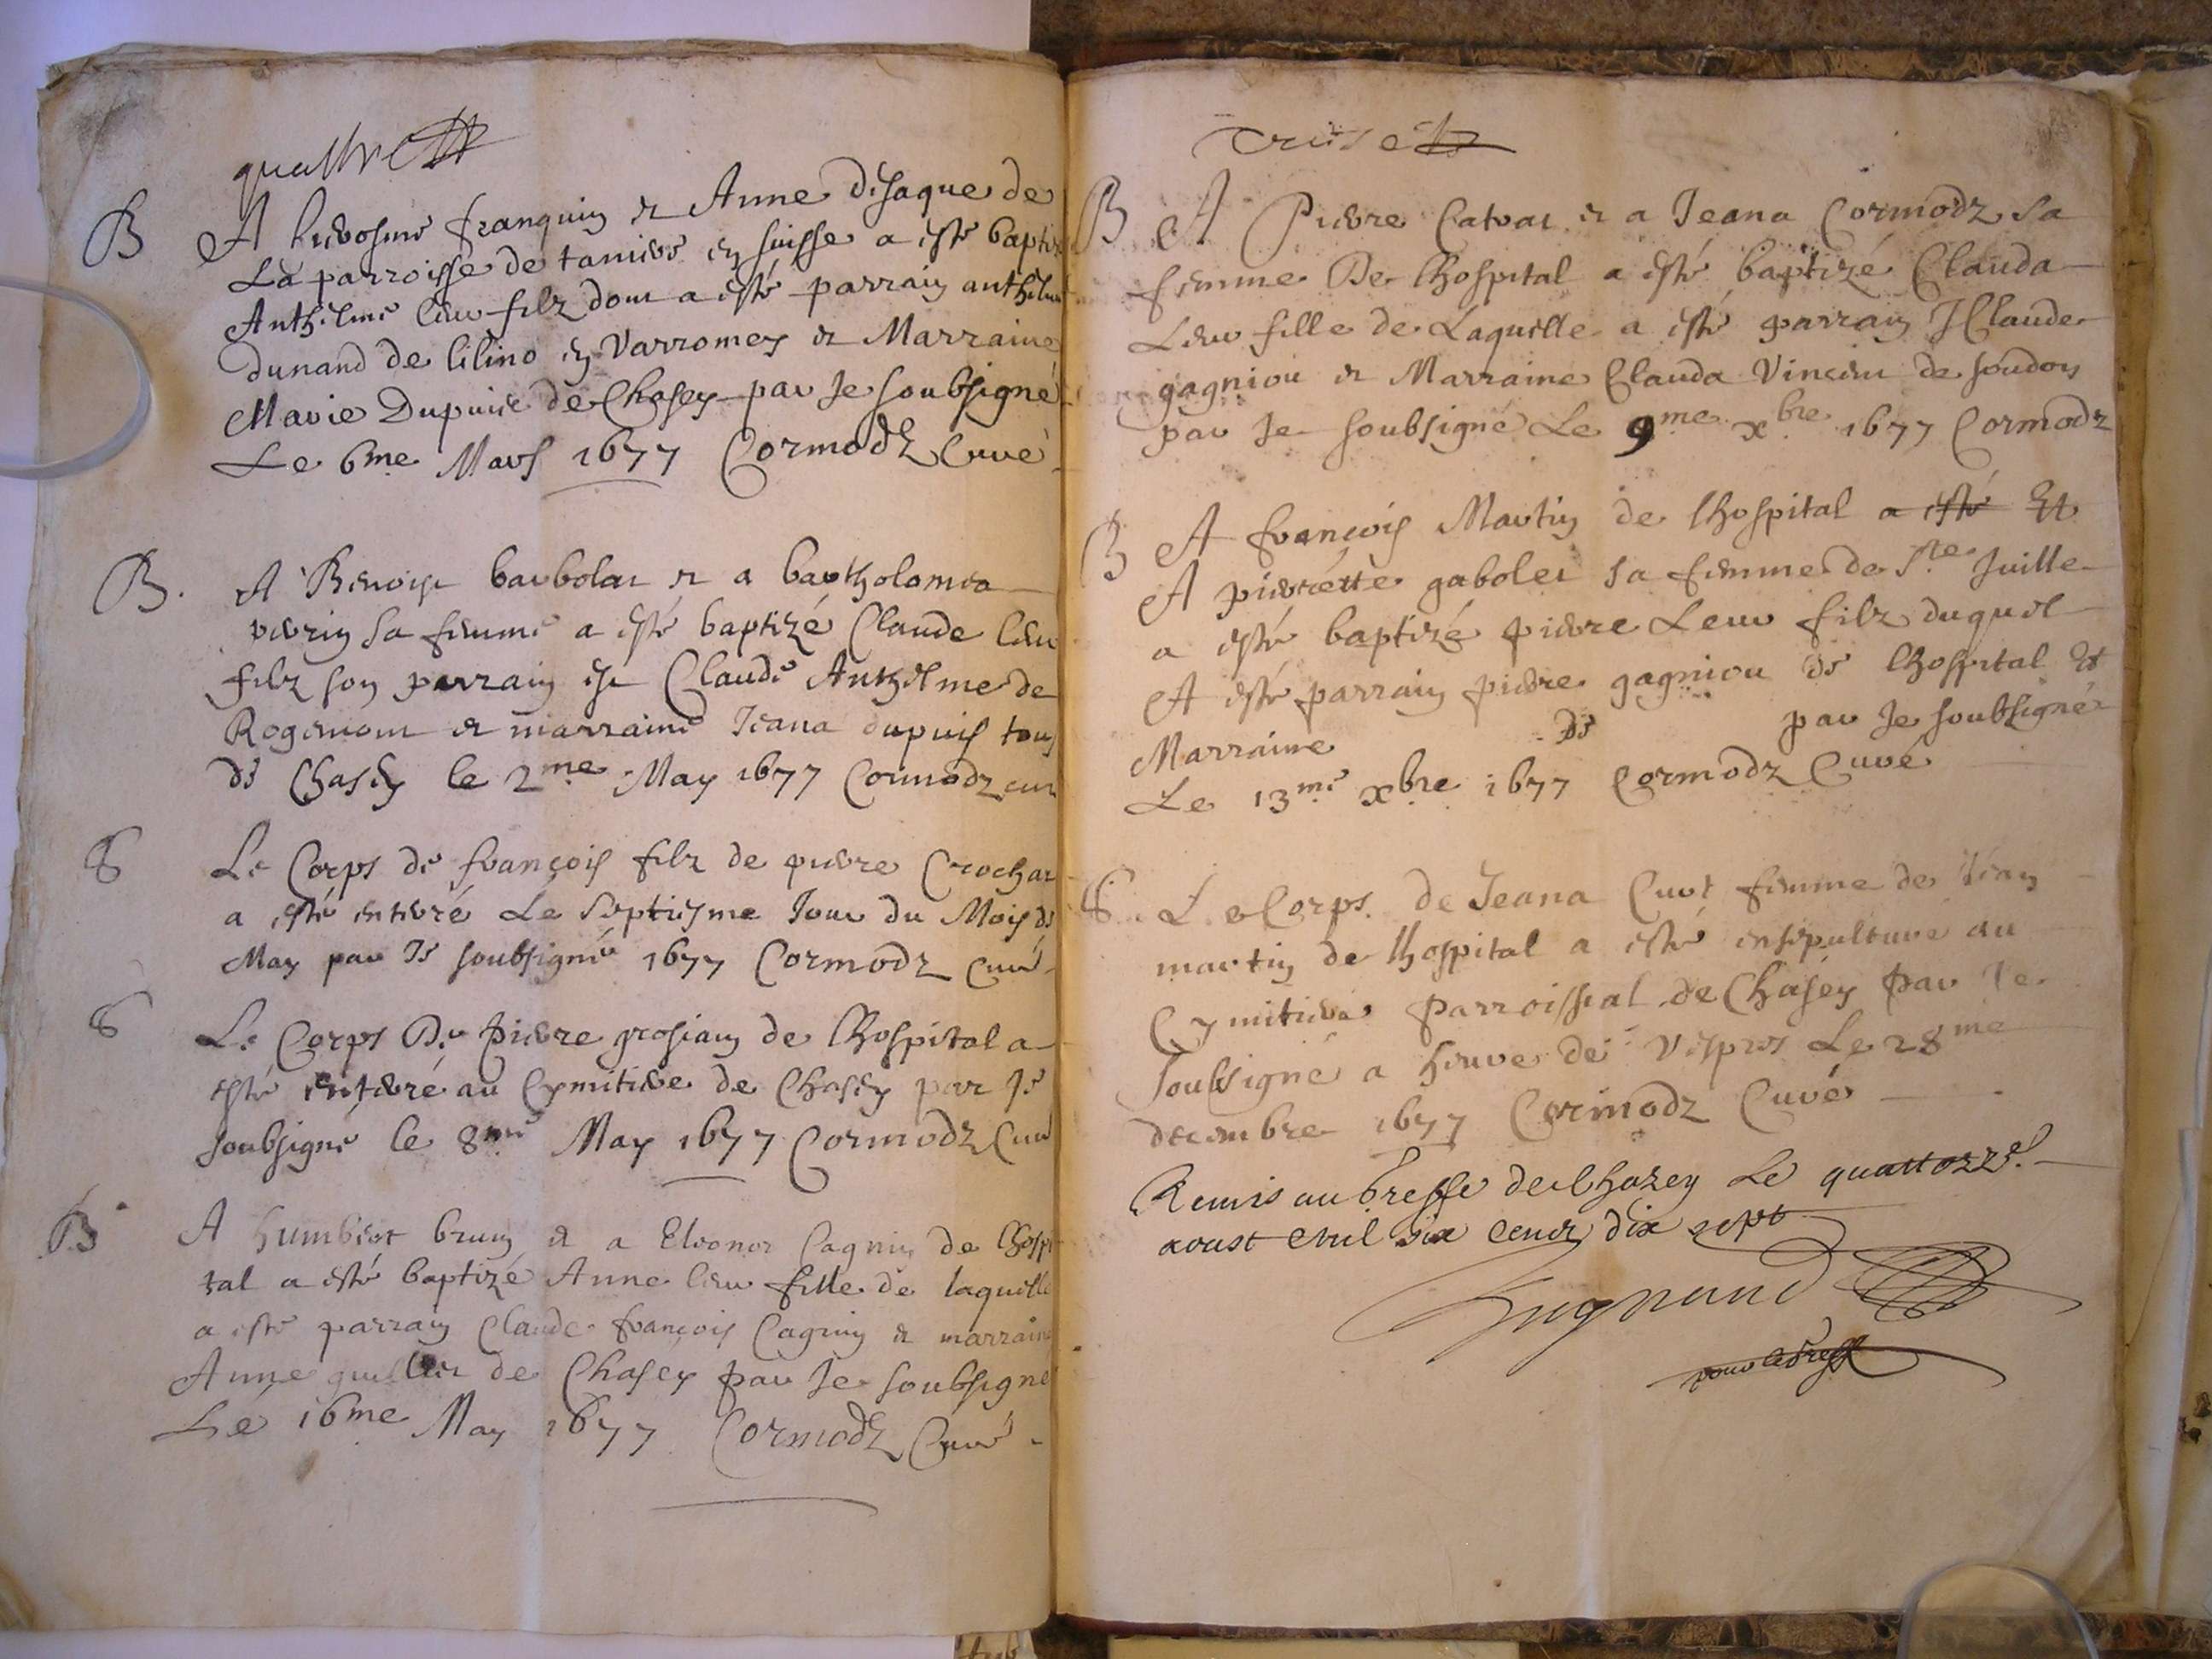 quattre
B A hierosme franquin et Anne disaque de
La parroisse de tamiere en suisse a esté baptizé
Anthelme leur filz dont a esté parrain anthelme
dunand de lilino en Varromey et Marraine
Marie Dupuise de Chasey par Je soubsigné
Le 6me Mars 1677 Cormodz Curé
B. A Benoist barbolat et a bartholomea
perrin sa femme a esté baptizé Claude leur
filz son parrain est Claude Anthelme de
Rogemont et marraine Jeana dupuis tous
de Chasey le 2me May 1677 Cormodz cur
S Le Corps de françois filz de pierre Crochat
a esté enterré Le Septiesme Jour du Mois de
May par Je soubsigné 1677 Cormodz Curé
S Le Corps De Pierre grosjan de lhospital a
esté enterré au Cymitiere de Chasey par Je
soubsigné le 8me May 1677 Cormodz Curé
B A humbert brun et a Eleonor Cagnin de lhospi
tal a esté baptizé Anne leur fille de laquelle
a esté parrain Claude françois Cagnin et marraine
Anne de Chasey par Je soubsigné
Le 16me May 1677 Cormodz Curé
Troise
B A Pierre Catrat et a Jeana Cormodz sa
femme De lhospital a esté baptizé Clauda
Leur fille de Laquelle a esté parrain Claude
gagniou et Marraine Clauda Vincent de soudon
par Je soubsigné Le 9me xbre 1677 Cormodz
B A françois Martin de lhospital a esté Et
A pierrette gabolet sa femme de Ste Juille
a esté baptizé pierre Leur filz duquel
A esté parrain pierre gagniou de lhospital Et
Marraine de par Je soubsigné
Le 13me xbre 1677 Cormodz Curé
S Le Corps de Jeana Curt femme de Jean
martin de lhospital a esté ensepulturé au
Cymitiere Parroissial de Chasey par Je
soubsigné a heure de Vespres Le 28me
decembre 1677 Cormodz Curé
Remis au Greffe de Chazey Le quattorze
aoust mil six cents dix sept
pour le Greffe